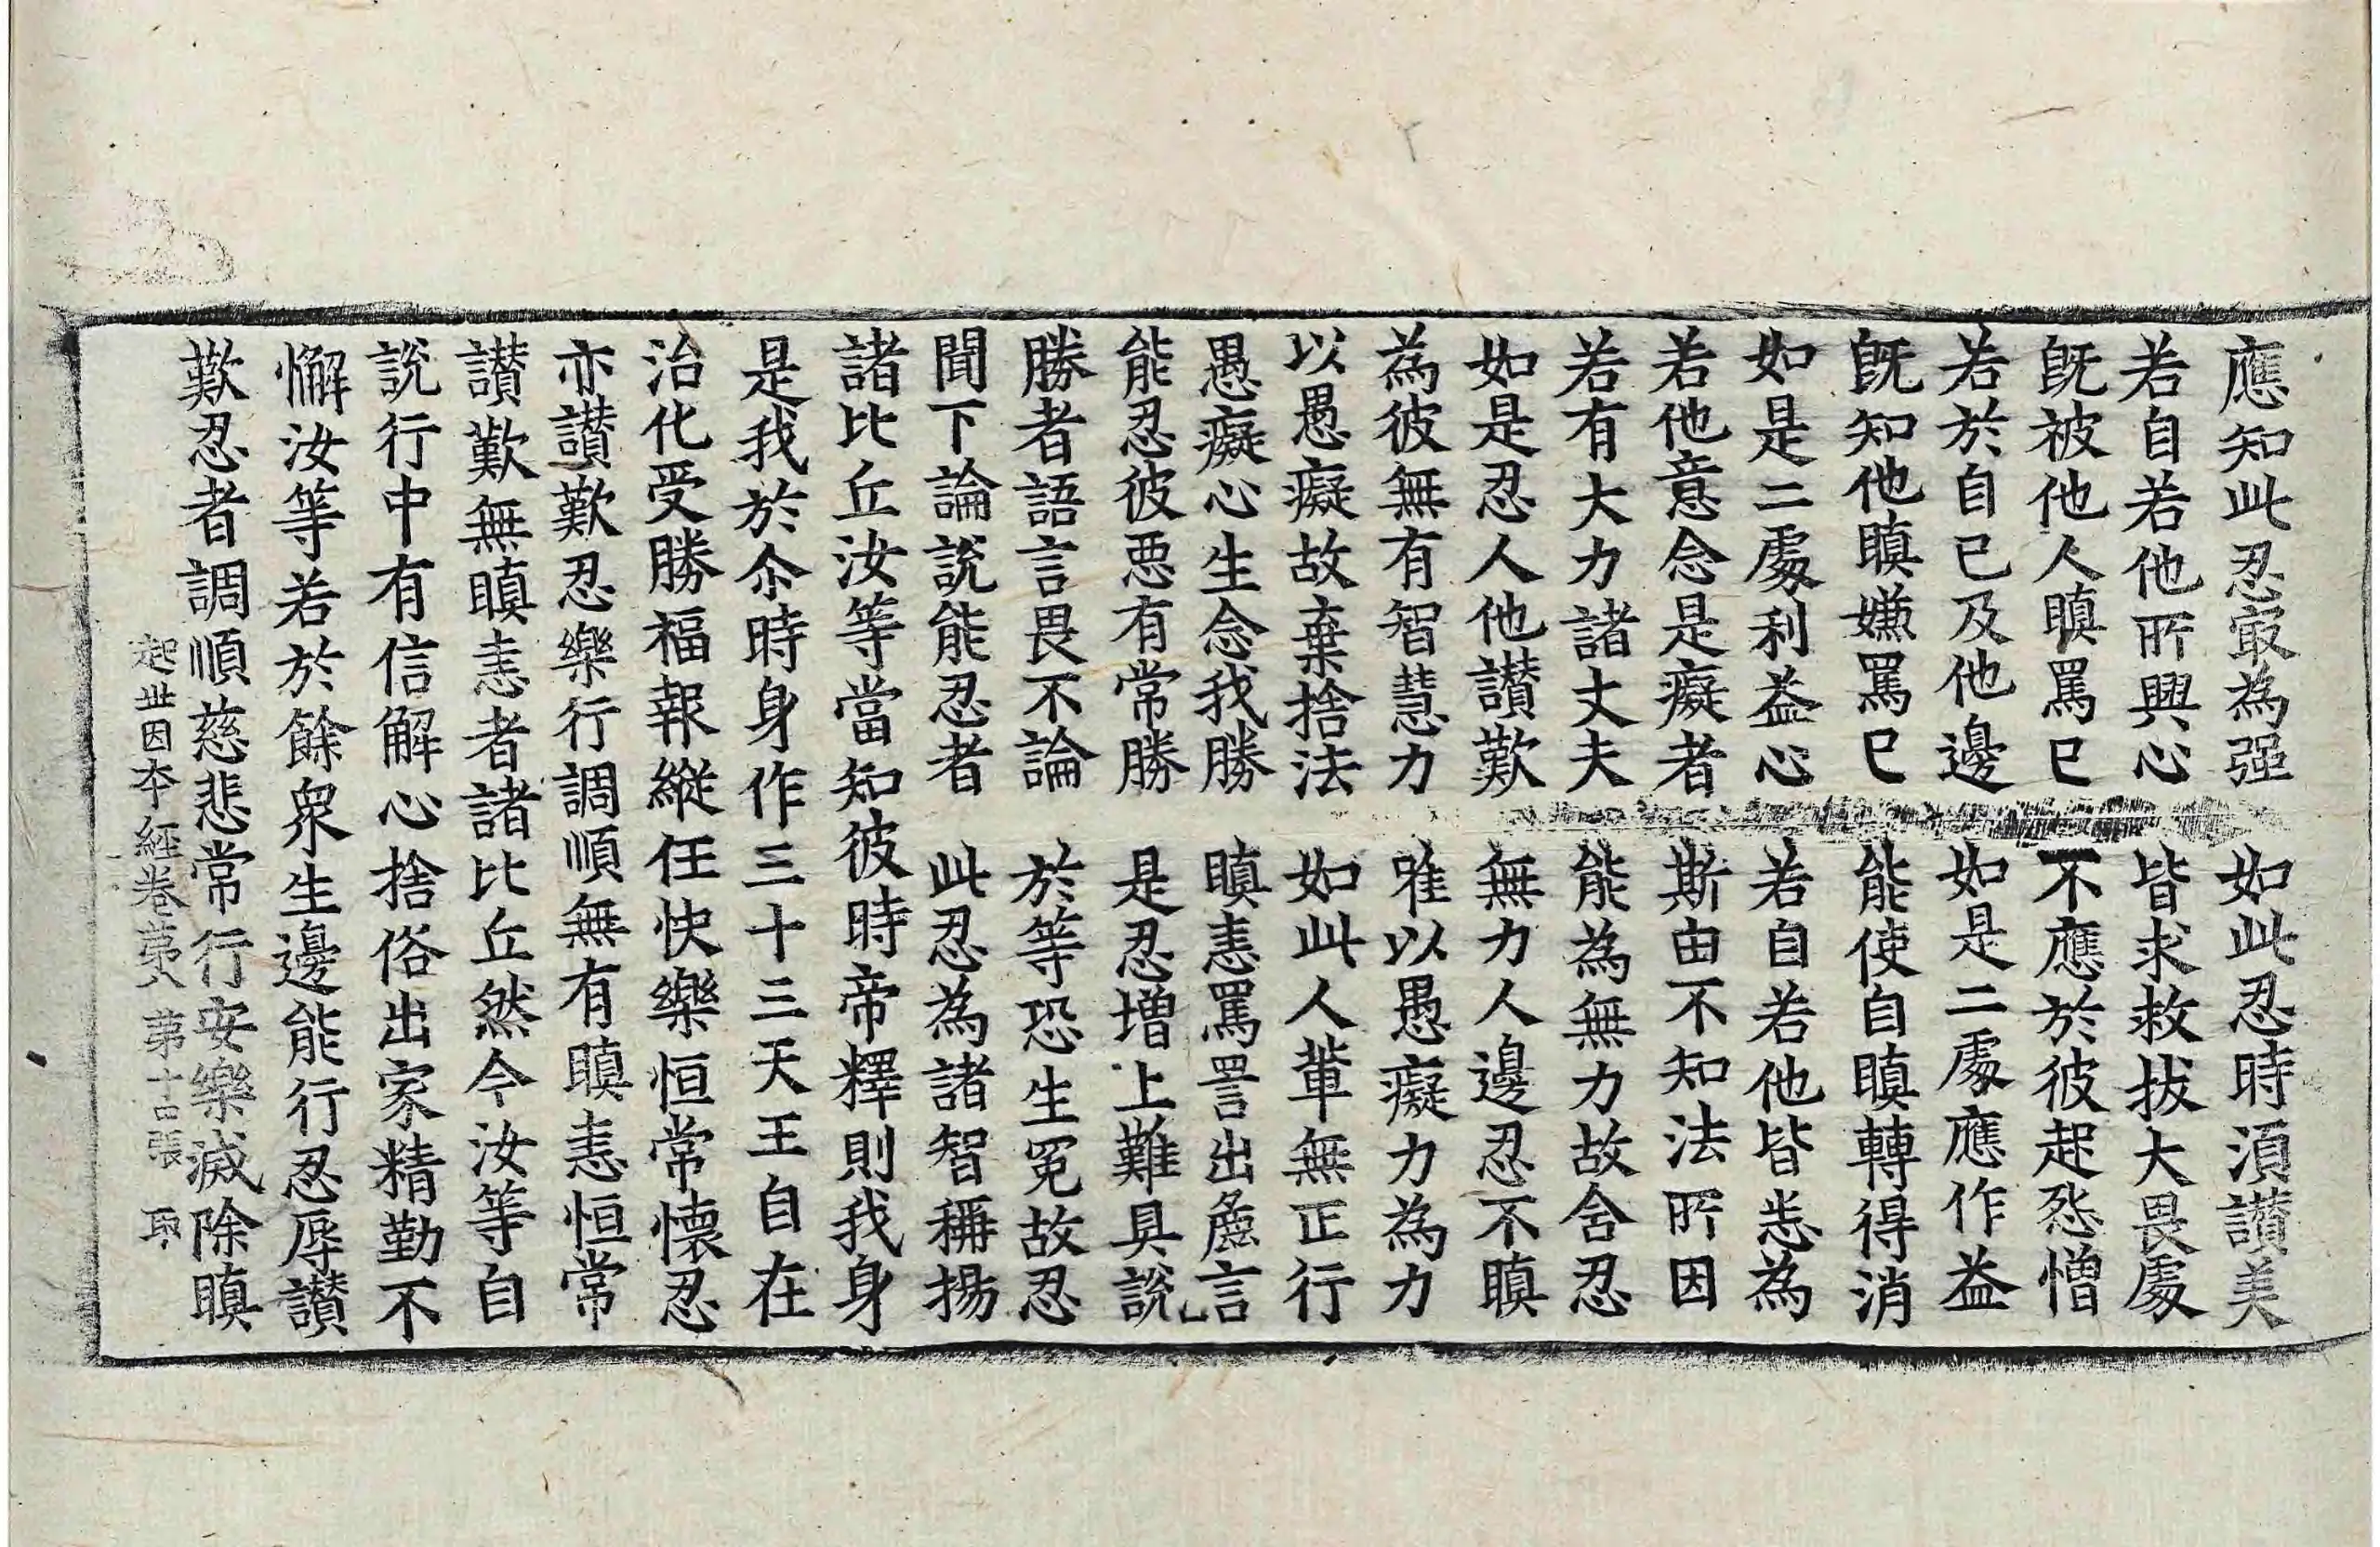 應知此忍寂為强　如此忍時湏讃美
若自若他所興心　皆求救拔大畏處
旣被他人瞋罵已　不應於彼起惒憎
若於自己及他邊　如是二處應作益
旣知他瞋嫌罵已　能使自瞋轉得消
如是二處利益心　若自若他皆悉為
若他意念是癡者　斯由不知法所因
若有大力諸丈夫　能為無力故含忍
如是忍人他讃歎　無力人邊忍不瞋
為彼無有智慧力　唯以愚癡力為力
以愚癡故棄捨法　如此人輩無正行
愚癡心生念我勝　瞋恚罵詈出麁言
能忍彼惡有常勝　是忍增上難具說
勝者語言畏不論　於等恐生冤故忍
聞下論說能忍者　此忍為諸智稱揚
諸比丘汝等當知彼時帝釋則我身
是我於尒時身作三十三天王自在
治化受勝福報縱任快樂恒常懷忍
亦讃歎忍樂行調順無有瞋恚恒常
讃歎無瞋恚者諸比丘然今汝等自
說行中有信解心捨俗出家精勤不
懈汝等若於餘衆生邊能行忍辱讃
歎忍者調順慈悲常行安樂滅除瞋
起世因本經卷第八　第十張　取